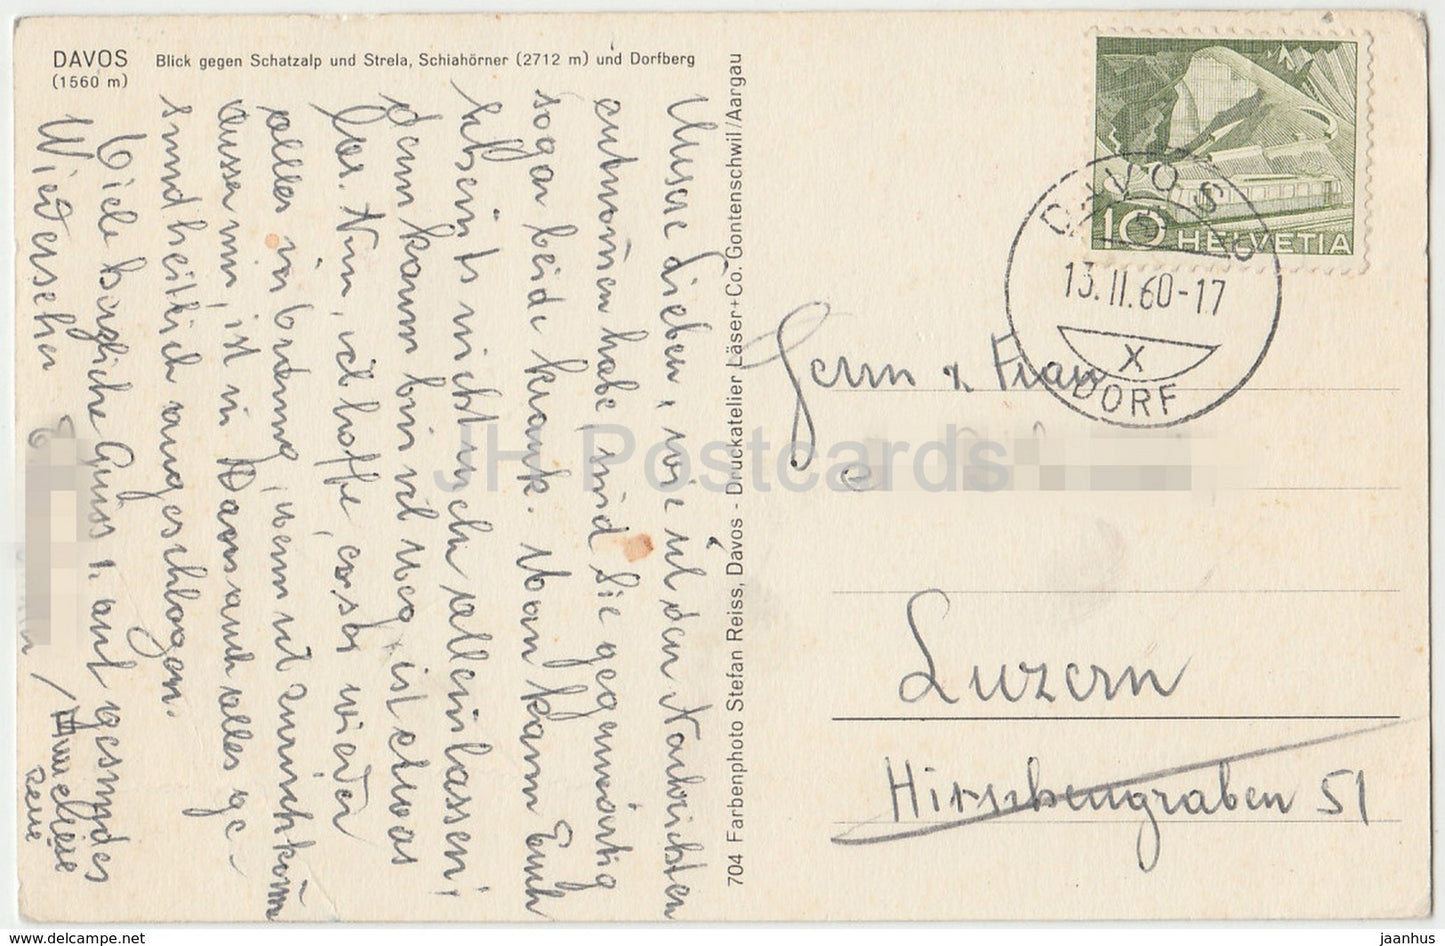 DAVOS Blick gegen Schatzalp und Strela, Schiahörner (2712 m) und Dorfberg
(1560 m)
Unsere Lieben, wie ich den Nachrichten
entnommen habe, sind Sie gegenwärtig
sogar beide krank. Man kann Euch
scheint's nicht mehr allein lassen;
denn kaum bin ich weg, ist etwas
los. Nun, ich hoffe, es sei wieder
alles in Ordnung, wenn ich zurückkomme
ausser mir, ist in Davos auch alles ge-
sundheitlich angeschlagen.
Viele herzliche Grüsse u. auf gesundes
Wiedersehen
Anneliese
René
704 Farbenphoto Stefan Reiss, Davos - Druckatelier Läser+Co. Gontenschwil/Aargau
10 HELVETIA
DAVOS
13.II.60-17
X
DORF
Herrn & Frau
Luzern
Hirschengraben 51
JH Postcards
www.delcampe.net
jaanhus